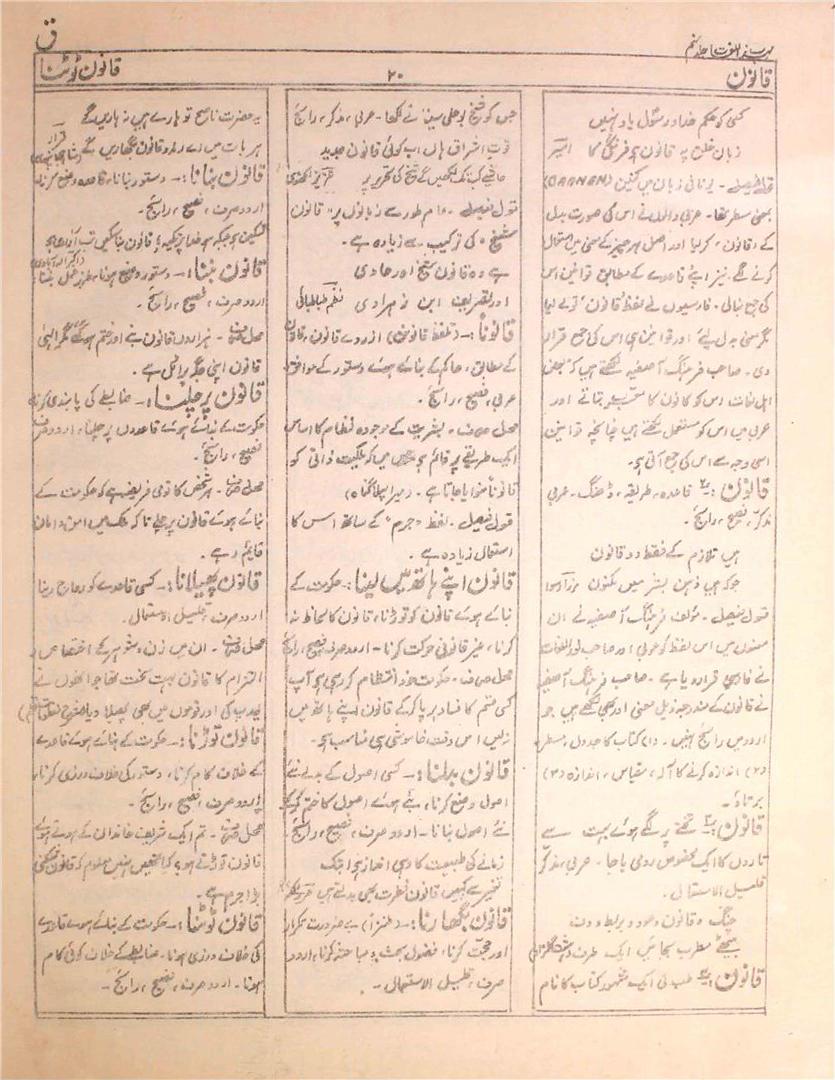 ق
مہذب اللغات جلد نہم
قانون
۲۰
قانون ٹوٹنا
کسی کو حکم خدا و رسول یاد نہیں
زبان خلق پہ قانون ہے فرنگی کا اکبر
قول فیصل۔ یونانی زبان میں کینن (QAANAN)
بمعنی مسطر تھا۔ عربی والوں نے اس کی صورت بدل
کے "قانون" کر لیا اور اصل ہر چیز کے معنی میں استعمال
کرنے لگے۔ نیز اپنے قاعدے کے مطابق قوانین اس
کی جمع بنالی۔ فارسیوں نے لفظ "قانون" تو لے لیا
مگر معنی بدل لیے اور قوانین ہی اس کی جمع قرار
دی۔ صاحب فرہنگ آصفیہ لکھتے ہیں کہ بعض
اہل لغات اس کو کانون کا معرب بتاتے اور
عربی میں اس کو مستعمل لکھتے ہیں چنانچہ قوانین
اسی وجہ سے اس کی جمع آتی ہے۔
قانون:۔ قاعدہ، طریقہ، ڈھنگ۔ عربی
مذکر، فصیح، رائج۔
ہیں تلازم کے فقط دو قانون
جو کہ ہیں ذہن بشر میں مکنون مرزا رسوا
قول فیصل۔ مؤلف فرہنگ آصفیہ نے ان
معنوں میں اس لفظ کو عربی اور صاحب نور اللغات
نے فارسی قرار دیا ہے۔ صاحب فرہنگ آصفیہ
نے قانون کے مندرجہ ذیل معنی اور بھی لکھے ہیں جو
اردو میں رائج نہیں۔ (۱) کتاب کا جدول، مسطر
(۲) اندازہ کرنے کا آلہ، مقیاس، اندازہ (۳)
برتاؤ۔
قانون:۔ تختے پر لگے ہوئے بہت سے
تاروں کا ایک مخصوص رومی باجا۔ عربی، مذکر
قلیل الاستعمال۔
چنگ و قانون و عود و بربط و دن
بیٹھے مطرب بجائیں ایک طرف
قانون:۔ طب کی ایک مشہور کتاب کا نام
جس کو شیخ بو علی سینا نے لکھا۔ عربی، مذکر، رائج
قوت اشراق ہاں اب کوئی قانون جدید
حاشیے کب تک لکھیں گے شیخ کی تحریر پر عزیز لکھنوی
قول فیصل۔ عام طور سے زبانوں پر "قانون
شیخ" کی ترکیب سے زیادہ ہے۔
ہے وہ قانون شیخ اور حاوی
اور تصریف ابن زہراوی نظم طباطبائی
قانوناً:۔ (تلفظ قانونن) از روے قانون، قانون
کے مطابق، حاکم کے بنائے ہوئے دستور کے موافق
عربی، فصیح، رائج۔
محل صرف۔ بشریت کے موجودہ نظام کا اساس
ایک طریقے پر قائم ہے جس میں کہ ملکیت ذاتی کو
قانوناً منوایا جاتا ہے۔ (میرا پہلا گناہ)
قول فیصل۔ لفظ "جرم" کے ساتھ اس کا
استعمال زیادہ ہے۔
قانون اپنے ہاتھ میں لینا:۔ حکومت کے
بنائے ہوئے قانون کو توڑنا، قانون کا لحاظ نہ
کرنا، غیر قانونی حرکت کرنا۔ اردو صرف، فصیح، رائج
محل صرف۔ حکومت خود انتظام کر رہی ہے آپ
کسی قسم کا فساد برپا کر کے قانون اپنے ہاتھ میں
نہ لیں اس وقت خاموشی ہی مناسب ہے۔
قانون بدلنا:۔ کسی اصول کے بدلے نئے
اصول وضع کرنا، بنے ہوئے اصول کو ختم کر کے
نئے اصول بنانا۔ اردو صرف، فصیح، رائج۔
زمانے کی طبیعت کا وہی انداز ہے اب تک
تغیر سے کہیں قانون فطرت بھی بدلتے ہیں عزیز لکھنوی
قانون بگھارنا:۔ (طنزاً) بے ضرورت تکرار
اور حجت کرنا، فضول بحث و مباحثہ کرنا، اردو
صرف، قلیل الاستعمال۔
یہ حضرت ناصح تو ہارے ہیں نہ ہاریں گے
ہر بات میں اے دلدار قانون بگھاریں گے
قانون بنانا:۔ دستور بنانا، قاعدہ وضع کرنا
اردو صرف، فصیح، رائج۔
لیکن ہو جبکہ سب خدا پر تکیہ؛ قانون بنا سکیں تب آزادی ہو اکبر الہ آبادی
قانون بننا:۔ دستور وضع ہونا، طرز عمل بننا
اردو صرف، فصیح، رائج۔
محل صرف۔ ہزاروں قانون بنے اور ختم ہو گئے مگر الٰہی
قانون اپنی جگہ پر اٹل ہے۔
قانون پر چلنا:۔ ضابطے کی پابندی کرنا
حکومت کے بنائے ہوئے قاعدوں پر چلنا، اردو صرف
فصیح، رائج۔
محل صرف۔ ہر شخص کا قومی فریضہ ہے کہ حکومت کے
بنائے ہوئے قانون پر چلے تاکہ ملک میں امن و امان
قائم رہے۔
قانون پھیلانا:۔ کسی قاعدے کو رواج دینا
اردو صرف، قلیل الاستعمال۔
محل صرف۔ ان میں زن و شوہر کے اختصاص و
التزام کا قانون بہت سخت تھا جو انھوں نے
یورپ کی اور قوموں میں بھی پھیلا دیا
قانون توڑنا:۔ حکومت کے بنائے ہوئے قاعدے
کے خلاف کام کرنا، دستور کی خلاف ورزی کرنا،
اردو صرف، فصیح، رائج۔
محل صرف۔ تم ایک شریف خاندان کے ہوتے ہوئے
قانون توڑتے ہو، کیا تمھیں نہیں معلوم کہ قانون شکنی
بڑا جرم ہے۔
قانون ٹوٹنا:۔ حکومت کے بنائے ہوئے قاعدے
کی خلاف ورزی ہونا۔ ضابطے کے خلاف کوئی کام
ہونا۔ اردو صرف، فصیح، رائج۔